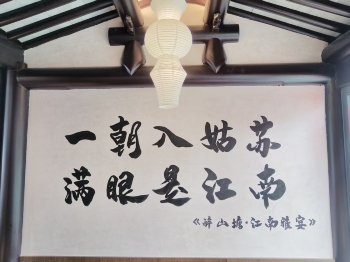 一朝入姑苏
满眼是江南
《薛山塘·江南雅宴》